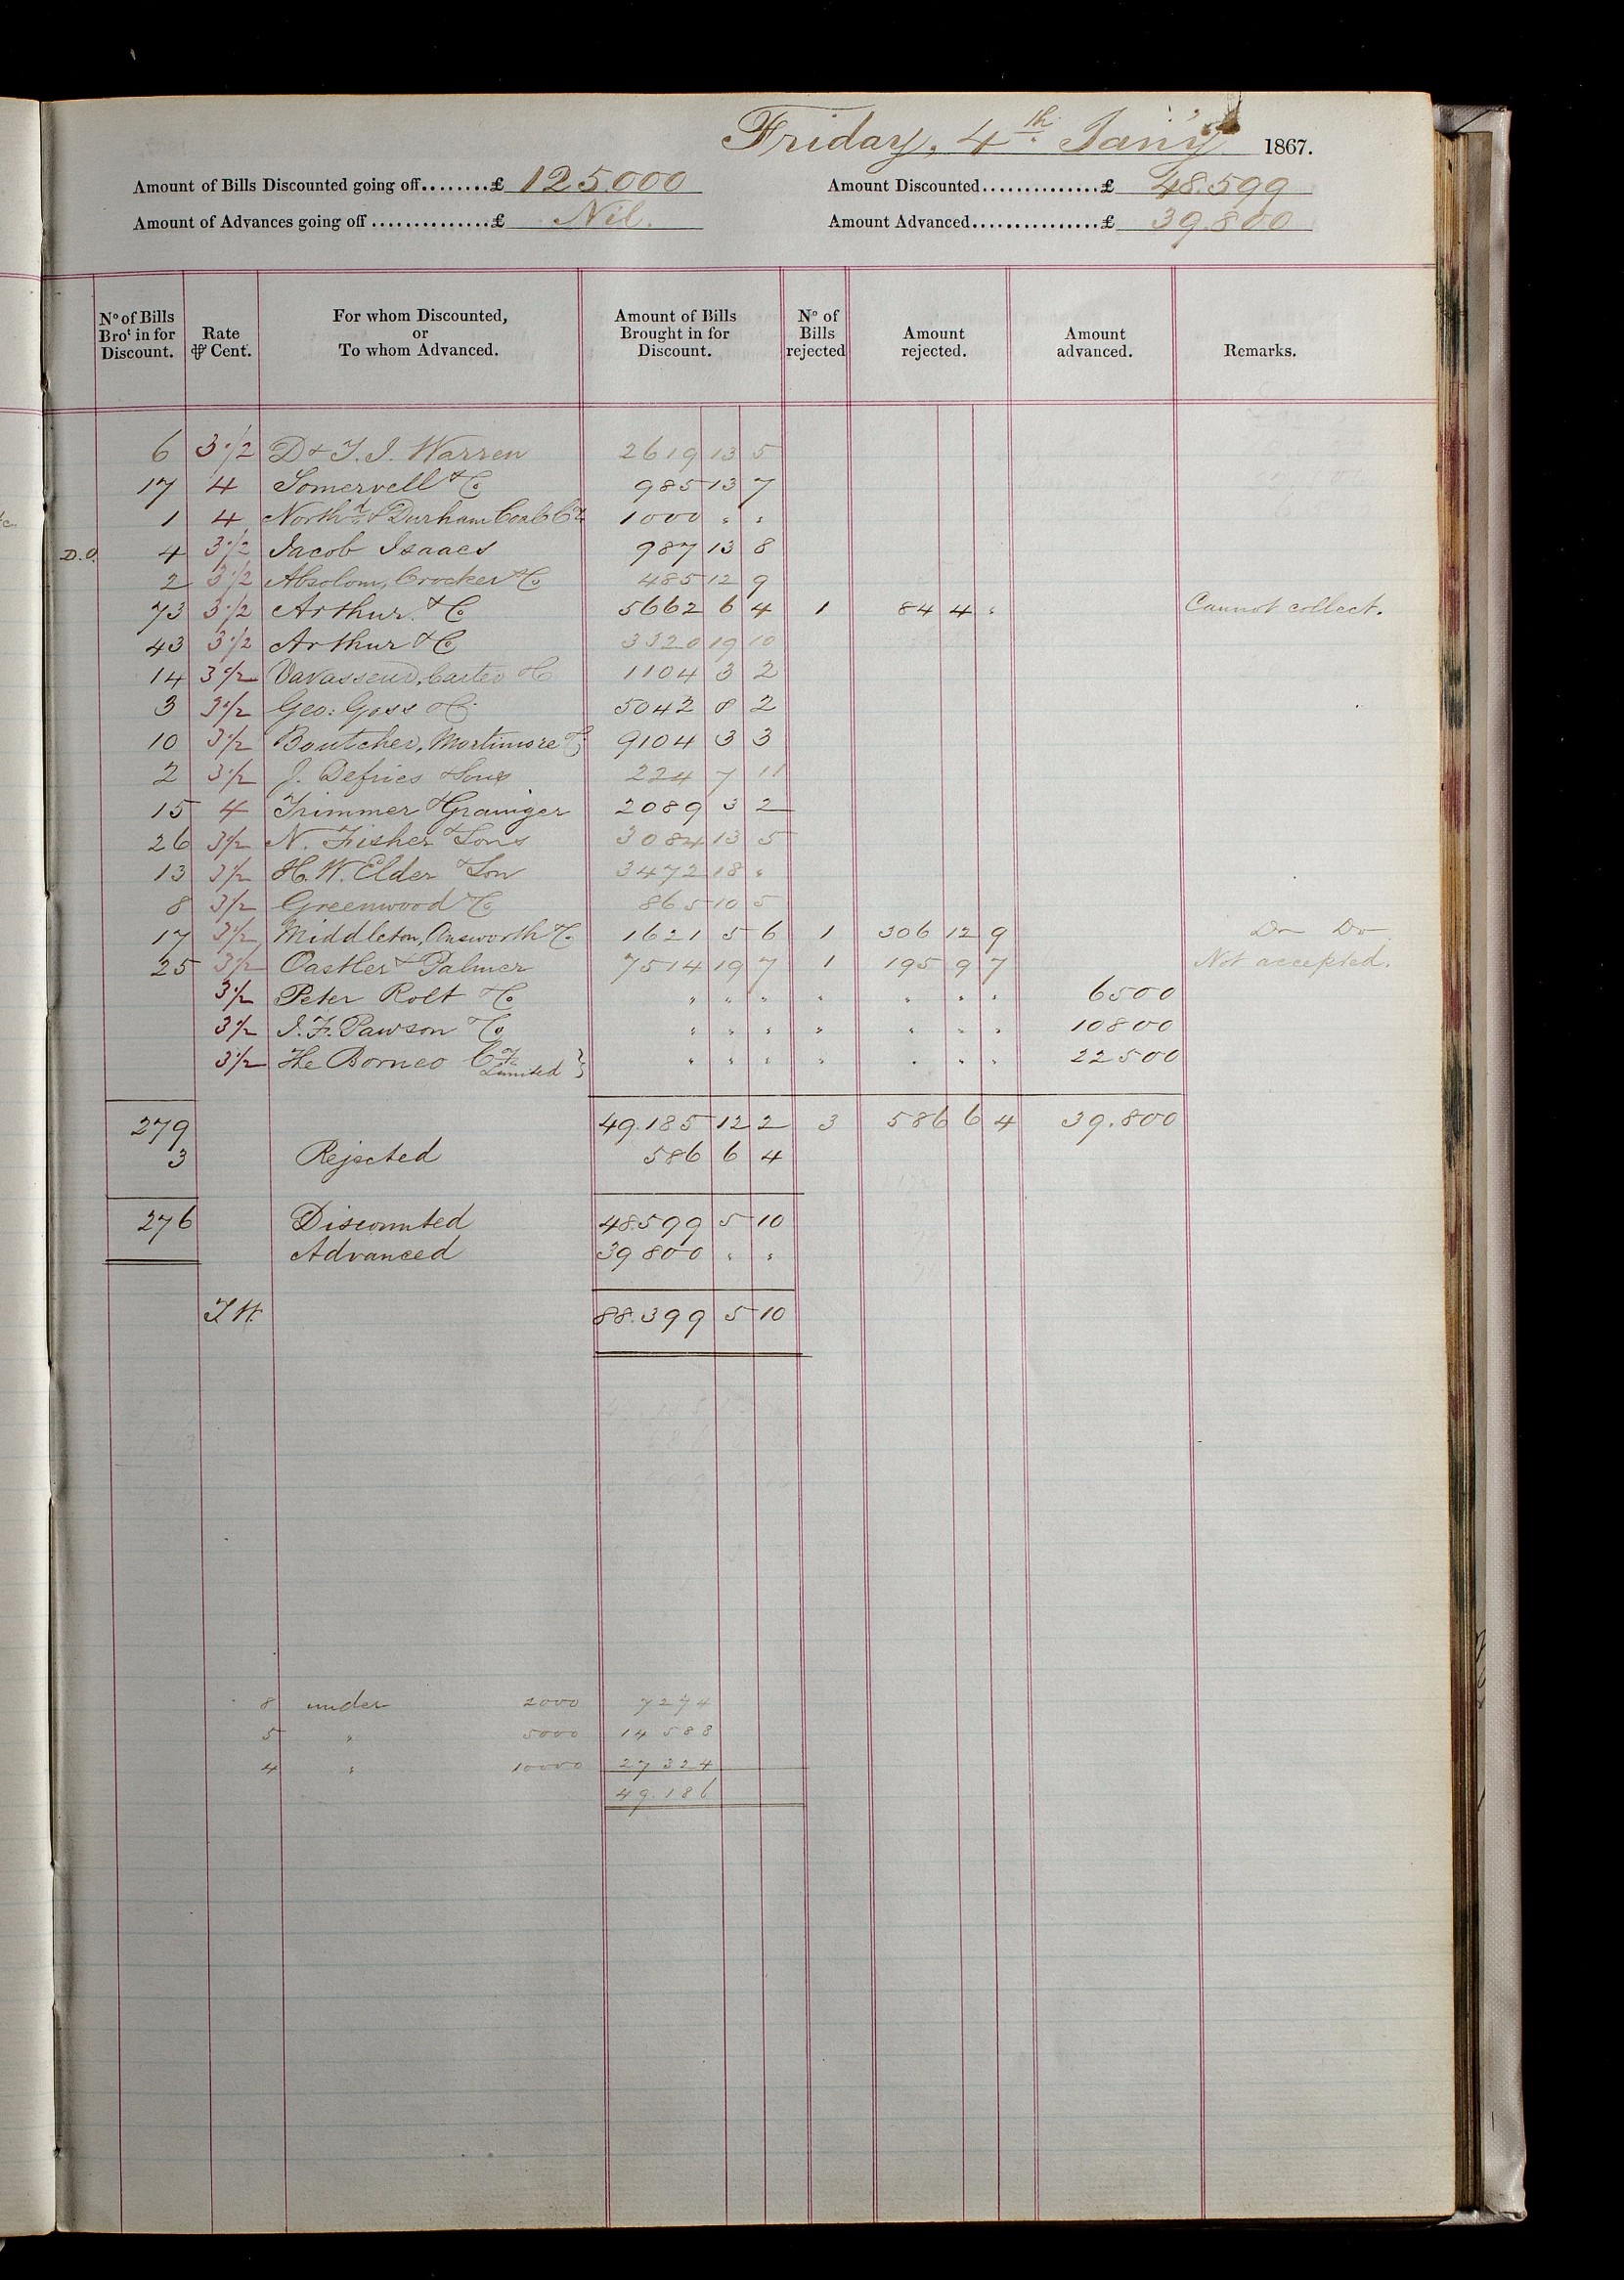 Friday, 4th. Jan'y 1867.
Amount of Bills Discounted going off........£ 125.000 Amount Discounted..............£ 48.599
Amount of Advances going off ..............£ Nil. Amount Advanced................£ 39.800
No of Bills Brot in for Discount. Rate ⅌ Cent. For whom Discounted, or To whom Advanced. Amount of Bills Brought in for Discount. No of Bills rejected Amount rejected. Amount advanced. Remarks.
6 3½ D & T. J. Warren 2619 13 5
17 4 Somervell & Co 985 13 7
1 4 North'n & Durham Coal Co 1000 " "
D.O. 4 3½ Jacob Isaacs 987 13 8
2 3½ Absolom, Crocker & Co 485 12 9
73 3½ Arthur & Co 5662 6 4 1 84 4 " Cannot collect.
43 3½ Arthur & Co 3320 19 10
14 3½ Vavasseur, Carter & Co 1104 3 2
3 3½ Geo: Goss & Co 5042 8 2
10 3½ Boutcher, Mortimore & Co 9104 3 3
2 3½ J. Defries & Sons 224 7 11
15 4 Trimmer & Grainger 2089 3 2
26 3½ N. Fisher & Sons 3084 13 5
13 3½ H. W. Elder & Son 3472 18 "
8 3½ Greenwood & Co 865 10 5
17 3½ Middleton, Answorth & Co 1621 5 6 1 306 12 9 Do Do
25 3½ Oastler & Palmer 7514 19 7 1 195 9 7 Not accepted.
3½ Peter Rolt & Co " " " " " " " 6500
3½ J. F. Pawson & Co " " " " " " " 10800
3½ The Borneo Co Limited } " " " " " " " 22500
279 49.185 12 2 3 586 6 4 39.800
3 Rejected 586 6 4
276 Discounted 48.599 5 10
Advanced 39.800 " "
T W. 88.399 5 10
8 under 2000 7274
5 " 5000 14 588
4 " 10000 27 324
49.186